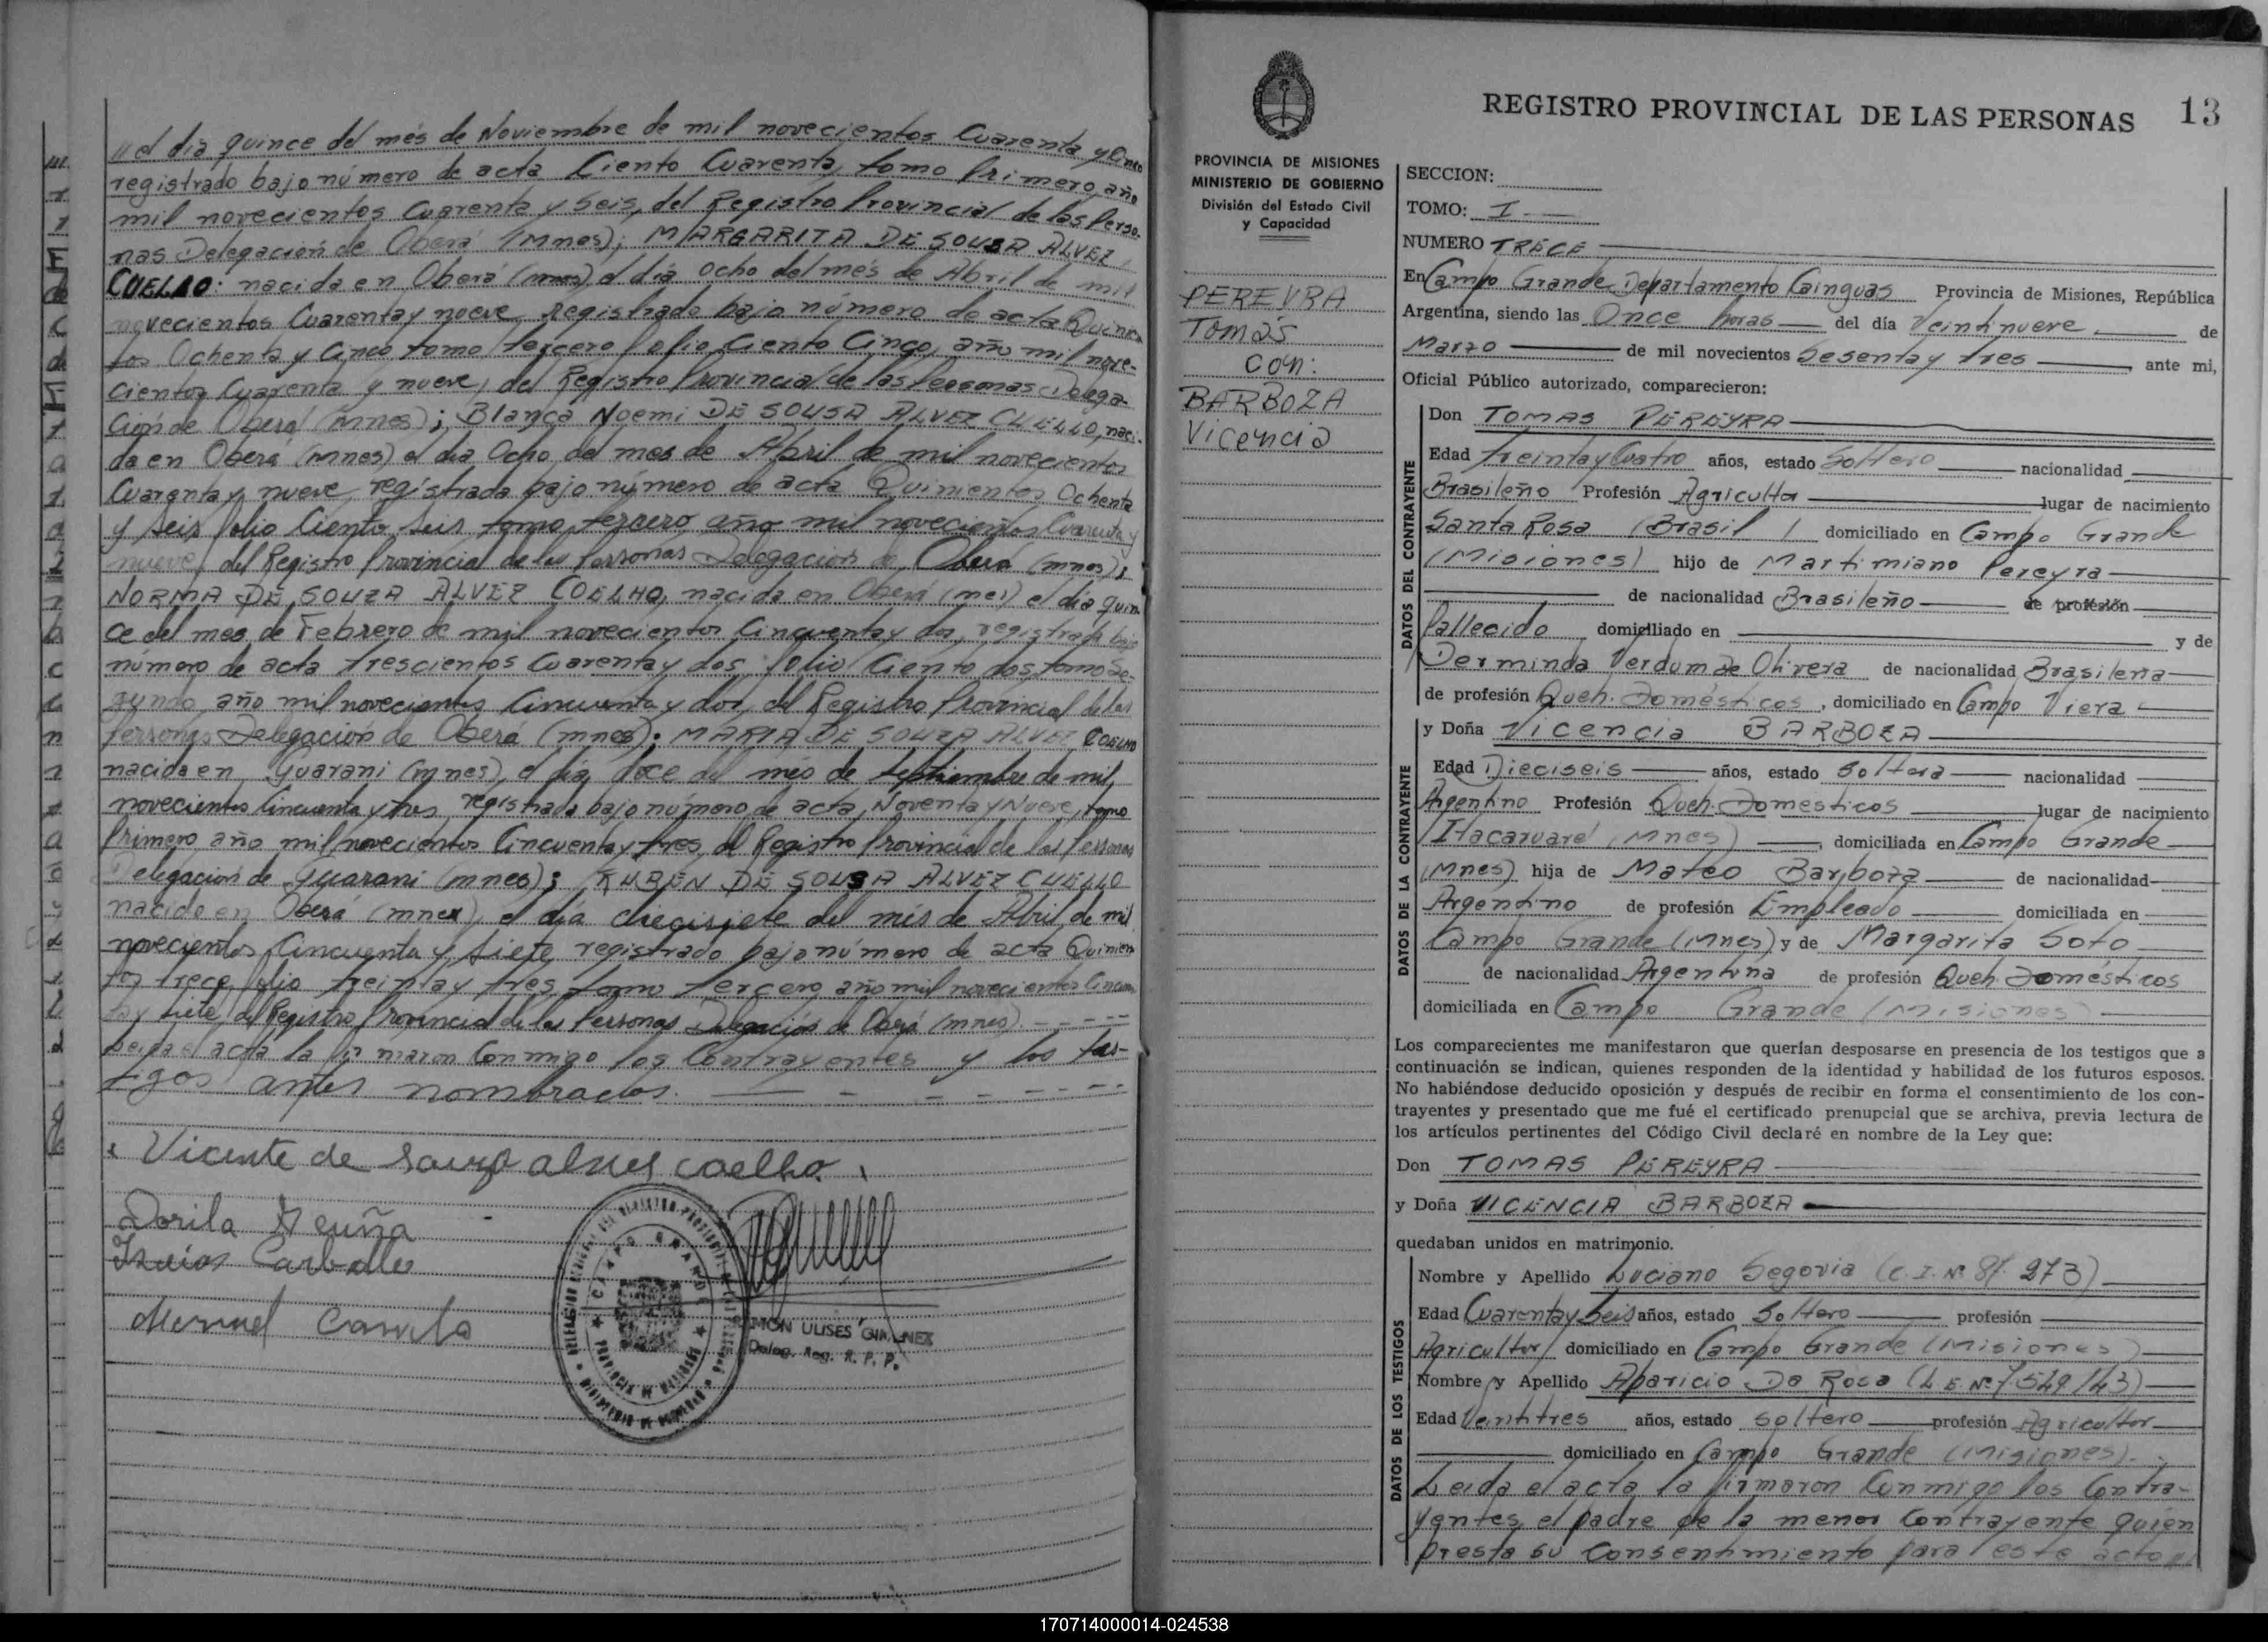 "el día quince del més de Noviembre de mil novecientos Cuarenta y Cinco
registrado bajo número de acta Ciento Cuarenta, tomo Primero, año
mil novecientos Cuarenta y Seis, del Registro Provincial de las Perso-
nas Delegación de Oberá (Mnes); MARGARITA DE SOUSA ALVEZ
CUELLO: nacida en Oberá (mnes) el día ocho del més de Abril de mil
novecientos Cuarenta y nueve, registrada bajo número de acta Quinien
tos Ochenta y Cinco tomo tercero folio Ciento Cinco, año mil nove-
cientos Cuarenta y nueve, del Registro Provincial de las Personas Delega-
ción de Oberá (mnes); Blanca Noemi DE SOUSA ALVEZ CUELLO, naci-
da en Oberá (mnes) el día Ocho del mes de Abril de mil novecientos
Cuarenta y nueve, registrada bajo número de acta Quinientos Ochenta
y Seis folio Ciento Seis tomo tercero año mil novecientos Cuarenta y
nueve, del Registro Provincial de las Personas Delegación de Oberá (mnes);
NORMA DE SOUZA ALVEZ COELHO, nacida en Oberá (mes) el día quin
ce del mes de Febrero de mil novecientos Cincuenta y dos, registrada bajo
número de acta trescientos Cuarenta y dos, folio Ciento dos tomo Se-
gundo, año mil novecientos Cincuenta y dos, del Registro Provincial de las
Personas Delegación de Oberá (mnes); MARIA DE SOUZA ALVEZ COELHO
nacida en Guarani (mnes), el día doce del més de Septiembre de mil
novecientos Cincuenta y tres, registrada bajo número de acta, Noventa y Nueve, tomo
Primero, año mil novecientos Cincuenta y tres, del Registro Provincial de las Personas
Delegación de Guarani (mnes); RUBEN DE SOUSA ALVEZ CUELLO
nacido en Oberá (mnes) el día diecisiete del més de Abril de mil
novecientos Cincuenta y Siete, registrado bajo número de acta Quinien
tos trece folio treinta y tres, tomo tercero, año mil novecientos Cincuen
ta y Siete, del Registro Provincial de las Personas Delegación de Oberá (mnes). - - - -
Leida el acta la firmaron Conmigo los Contrayentes y los tes-
tigos antes nombrados.
Vicente de Souza alves coelho.
Dorila Acuña
Isaias Carballo
Manuel
CAMPO GRANDE
PROVINCIA DE MISIONES
RAMON ULISES GIMENEZ
Deleg. Reg. R. P. P.
REGISTRO PROVINCIAL DE LAS PERSONAS 13
PROVINCIA DE MISIONES
MINISTERIO DE GOBIERNO
División del Estado Civil
y Capacidad
PEREYRA
Tomás
con:
BARBOZA
Vicencia
SECCION:
TOMO: I
NUMERO TRECE
En Campo Grande, Departamento Cainguas Provincia de Misiones, República
Argentina, siendo las Once horas del día Veintinueve de
Marzo de mil novecientos Sesenta y tres, ante mi,
Oficial Público autorizado, comparecieron:
DATOS DEL CONTRAYENTE
Don TOMAS PEREYRA
Edad treinta y Cuatro años, estado Soltero nacionalidad
Brasileño Profesión Agricultor lugar de nacimiento
Santa Rosa (Brasil) domiciliado en Campo Grande
(Misiones) hijo de Martimiano Pereyra
de nacionalidad Brasileño de profesión
fallecido domiciliado en y de
Derminda Verdum de Olivera de nacionalidad Brasileña
de profesión Queh. Domésticos, domiciliado en Campo Viera
DATOS DE LA CONTRAYENTE
y Doña Vicencia BARBOZA
Edad Dieciseis años, estado Soltera nacionalidad
Argentino Profesión Queh. Domesticos lugar de nacimiento
Itacaruaré (Mnes), domiciliada en Campo Grande
(Mnes) hija de Mateo Barboza de nacionalidad
Argentino de profesión Empleado domiciliada en
Campo Grande (Mnes) y de Margarita Soto
de nacionalidad Argentina de profesión Queh. Domésticos
domiciliada en Campo Grande (Misiones)
Los comparecientes me manifestaron que querían desposarse en presencia de los testigos que a
continuación se indican, quienes responden de la identidad y habilidad de los futuros esposos.
No habiéndose deducido oposición y después de recibir en forma el consentimiento de los con-
trayentes y presentado que me fué el certificado prenupcial que se archiva, previa lectura de
los artículos pertinentes del Código Civil declaré en nombre de la Ley que:
Don TOMAS PEREYRA
y Doña VICENCIA BARBOZA
quedaban unidos en matrimonio.
DATOS DE LOS TESTIGOS
Nombre y Apellido Luciano Segovia (C. I. Nº 81.273)
Edad Cuarenta y Seis años, estado Soltero profesión
Agricultor domiciliado en Campo Grande (Misiones)
Nombre y Apellido Aparicio Da Rosa (L. E. Nº 7.549.143)
Edad Veintitres años, estado soltero profesión Agricultor
domiciliado en Campo Grande (Misiones).
Leida el acta la firmaron Conmigo los Contra-
yentes, el padre de la menor Contrayente quién
presta su Consentimiento para este acto"
170714000014-024538